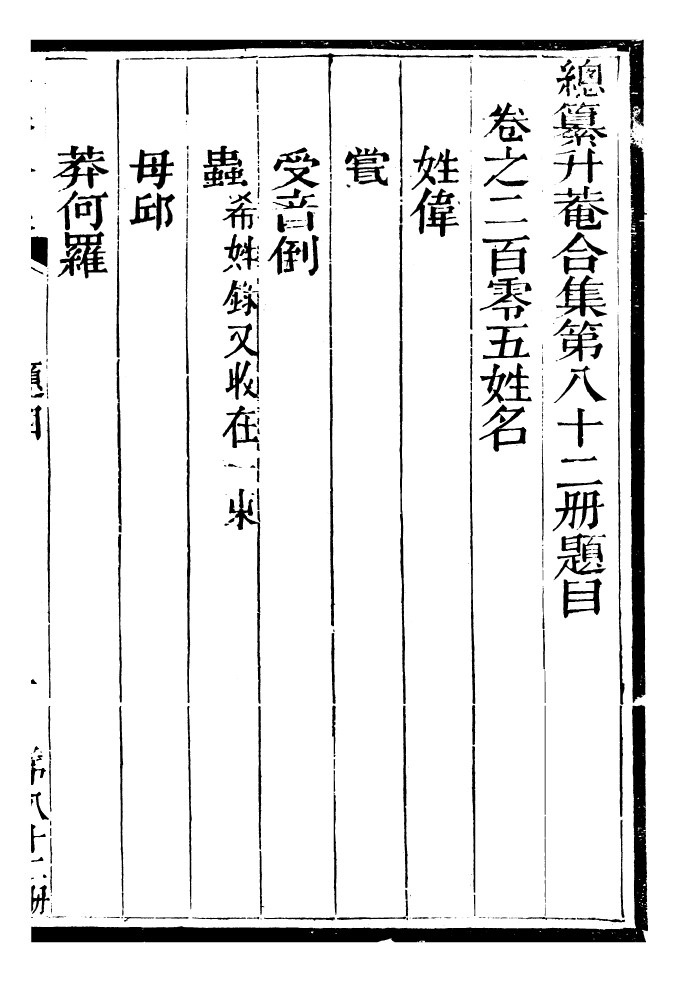 總纂升菴合集第八十二册題目
卷之二百零五姓名
姓偉
䝨
受音倒
蟲希姓錄又收在一東
毋邱
莽何羅
題目
第八十二册